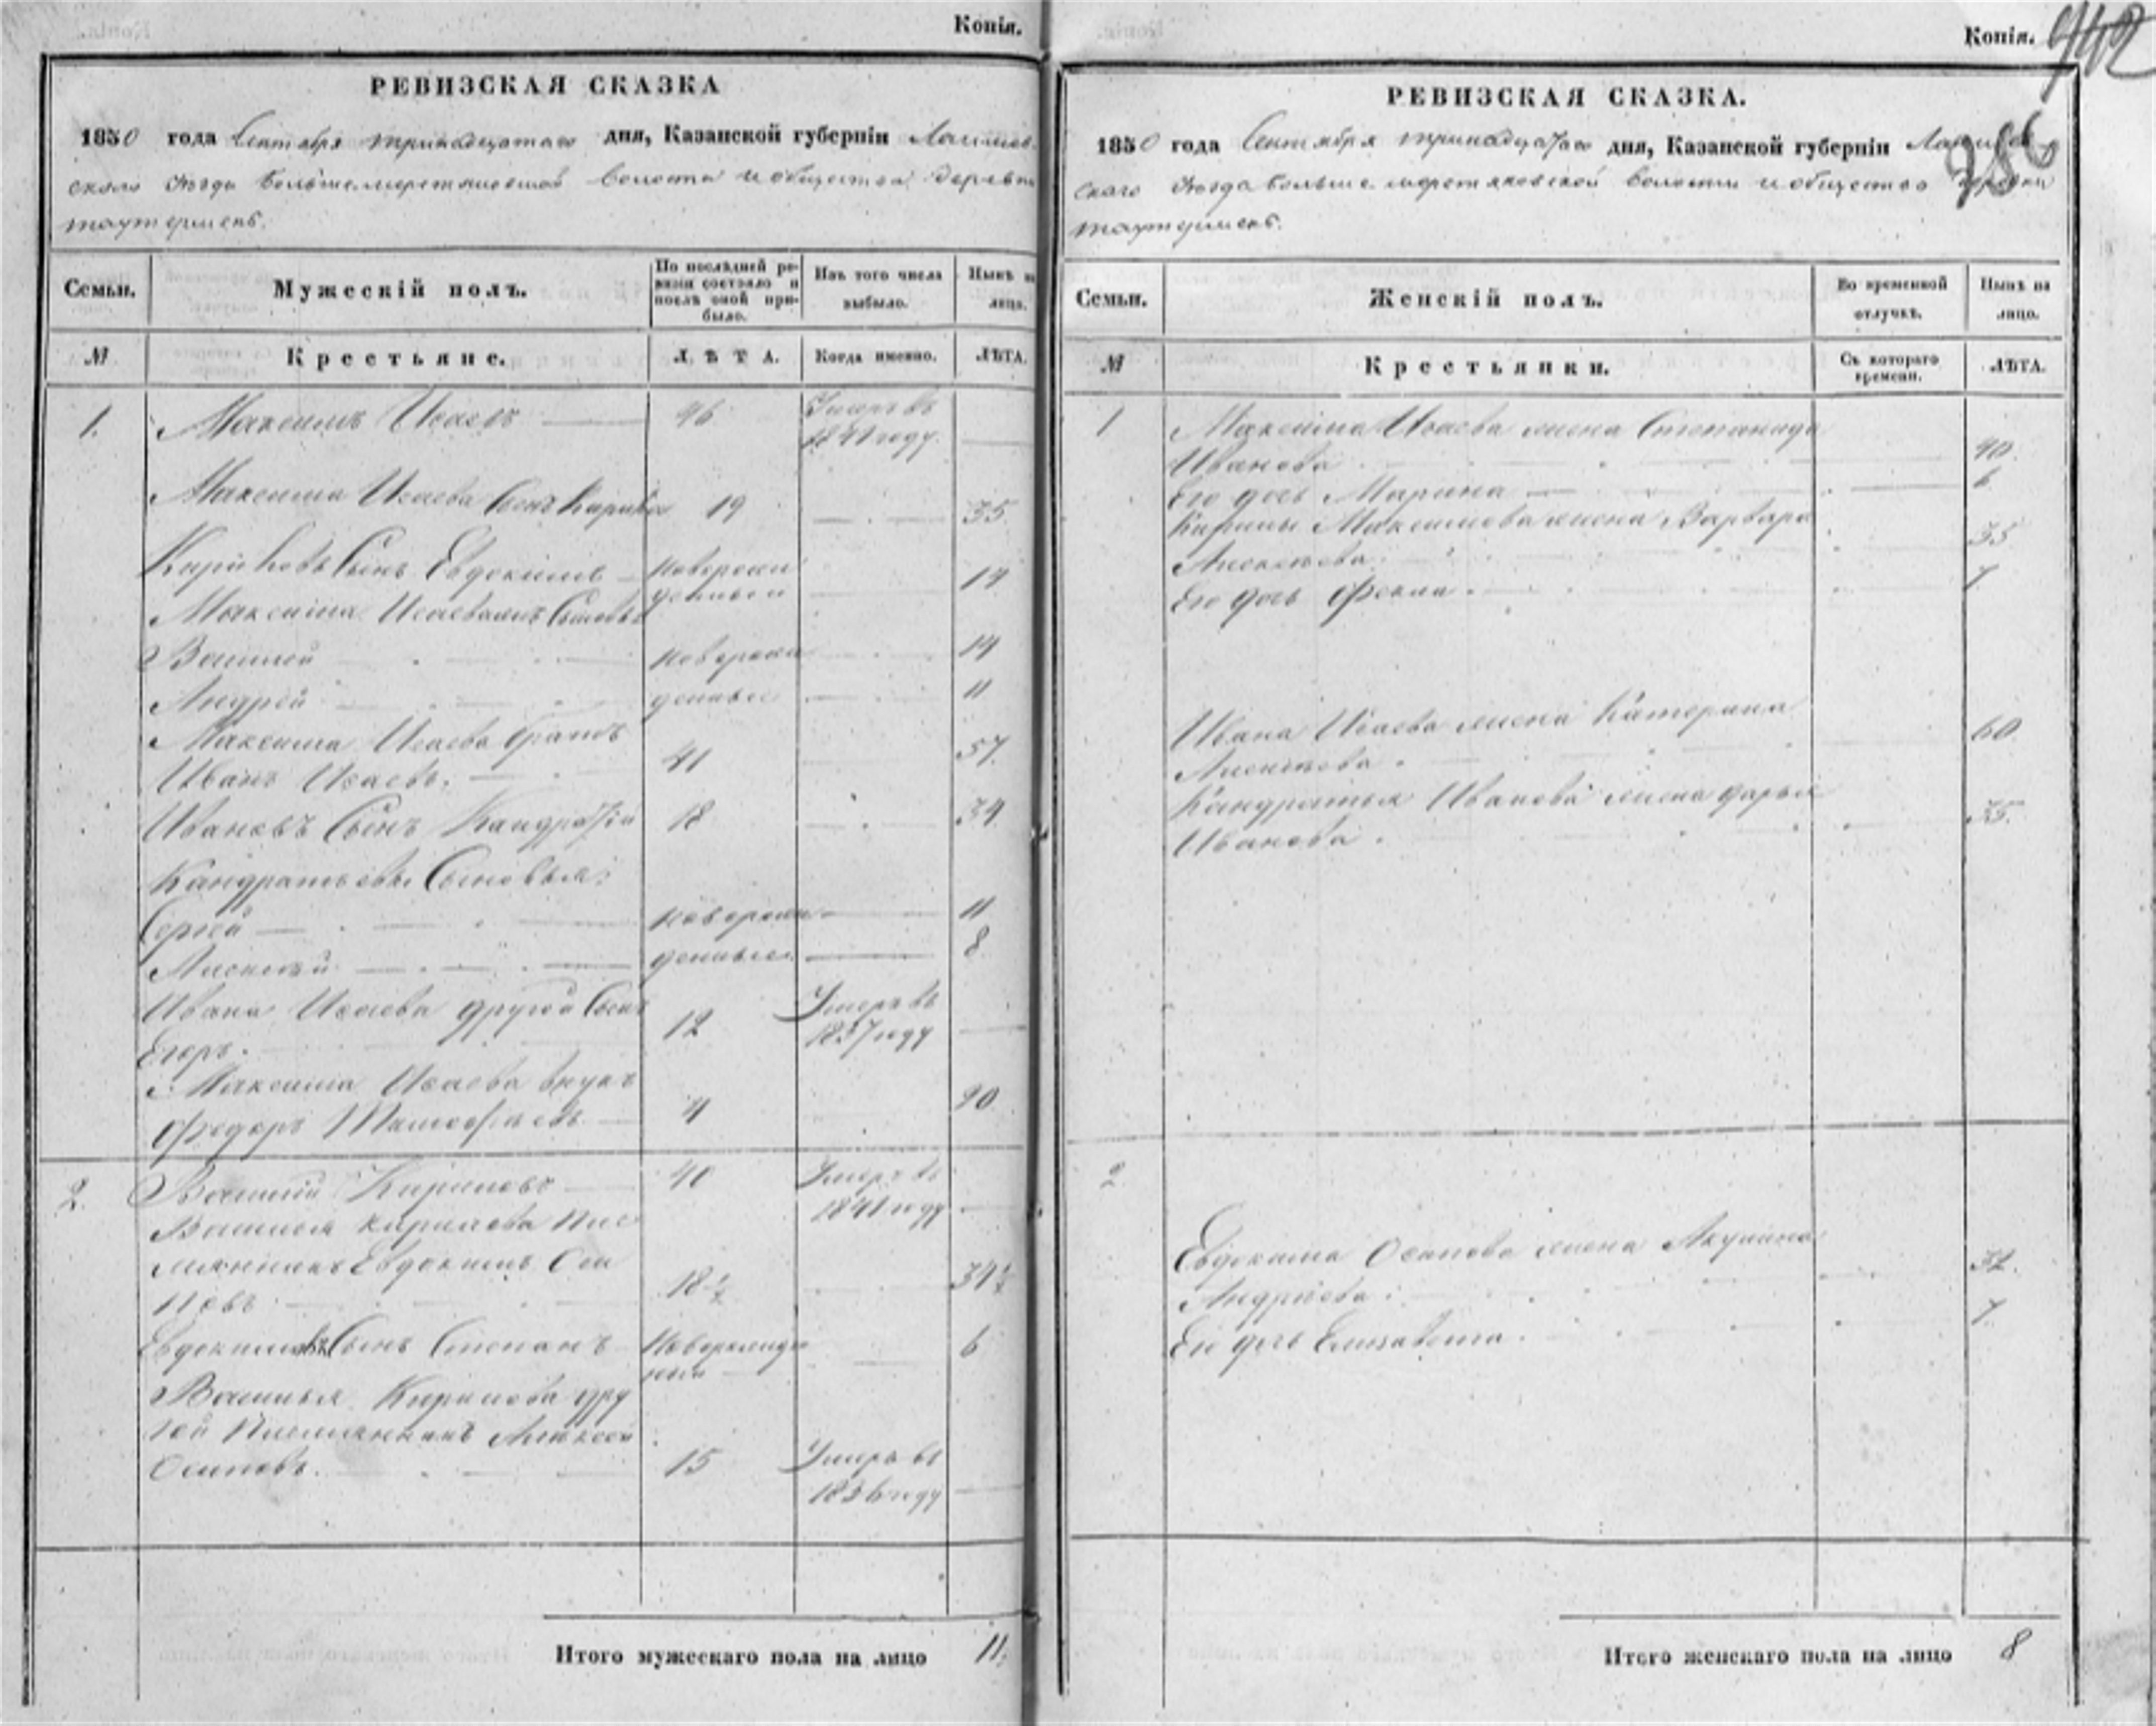 Копія.
РЕВИЗСКАЯ СКАЗКА
1850 года Сентября тринадцатаго дня, Казанской губерніи Лаишев
скаго Уезда волости и общества деревни
Семьи.
Мужескій полъ.
По послѣдней ре-
визіи состояло и
послѣ оной при-
было.
Изъ того числа
выбыло.
Нынѣ на
лицо.
№
Крестьяне.
ЛѢТА.
Когда именно.
ЛѢТА.
1. Максимъ Исаевъ 46 Умеръ въ
1841 году.
Максима Исаева Сынъ 19 35
Сынъ Евдокимъ новорож 14
Максима Исаева Сыновья денныи
Василей новорож 14
Андрей денные 11
Максима Исаева братъ
Иванъ Исаевъ. 41 57
Ивановъ Сынъ Кандратій 18 34
Кандратьевы Сыновья:
Сергей новорож 11
Алексей денные 8
Ивана Исаева другой Сынъ Умеръ въ
Егоръ. 12 1837 году
Максима Исаева внукъ
Федоръ 4 20
2. Василий Кириловъ 40 Умеръ въ
1841 году
Василья Кирилова пле
мянникъ Евдокимъ Оси
повъ 18 ½ 34 ½
Сынъ Степанъ Новорожде 6
ный
Василья Кирилова дру
гой Племянникъ Алексей
Осиповъ. 15 Умеръ въ
1836 году
Итого мужескаго пола на лицо 11.
Копія.
942
РЕВИЗСКАЯ СКАЗКА.
1850 года Сентября тринадцатаго дня, Казанской губерніи
скаго Уезда волости и общества
Семьи.
Женскій полъ.
Во временной
отлучкѣ.
Нынѣ на
лицо.
№
Крестьянки.
Съ котораго
времени.
ЛѢТА.
1 Максима Исаева жена Степанида
Иванова 40
Его дочь Марина 6
Максимова жена Варвара
Алексеева. 35
Его дочь Фекла. 7
Ивана Исаева жена Катерина
Алексеева. 60
Кандратья Иванова жена Дарья
Иванова. 35.
2
Евдокима Осипова жена Акулина
Андреева. 32.
Его дочь Елизавета. 7
Итого женскаго пола на лицо 8